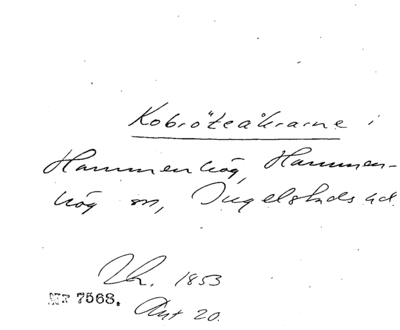 Kobröteåkrarne i
Hammenhög, Hammen-
hög sn, Ingelstads hd.
Lr. 1853
Nr 7568. Akt 20.